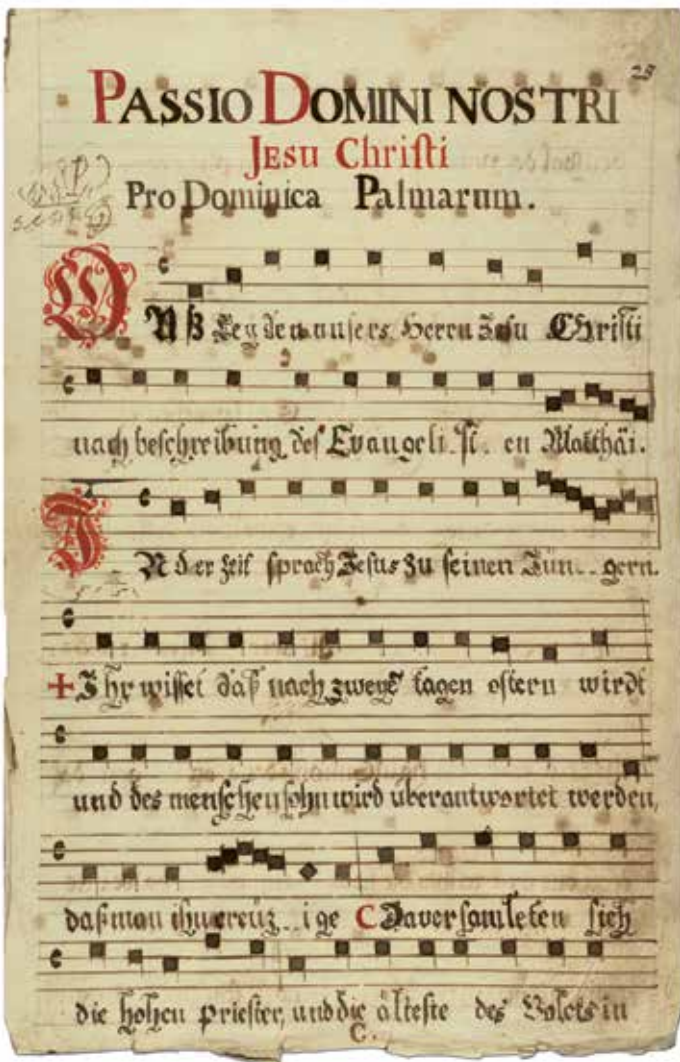 28
PASSIO DOMINI NOSTRI
JESU Christi
Pro Dominica Palmarum.
DAß Leyden unsers Herrn Jesu Christi
nach beschreibung des Evangeli. sti. en Matthäi.
IN der zeit sprach Jesus zu seinen Jün.. gern.
+ Ihr wisset daß nach zweyē tagen ostern wirdt
und des menschen sohn wird überantwortet werden,
daß man ihn creüz.. i ge C Da versamleten sich
die hohen priester, und die älteste des Volcks in
C.